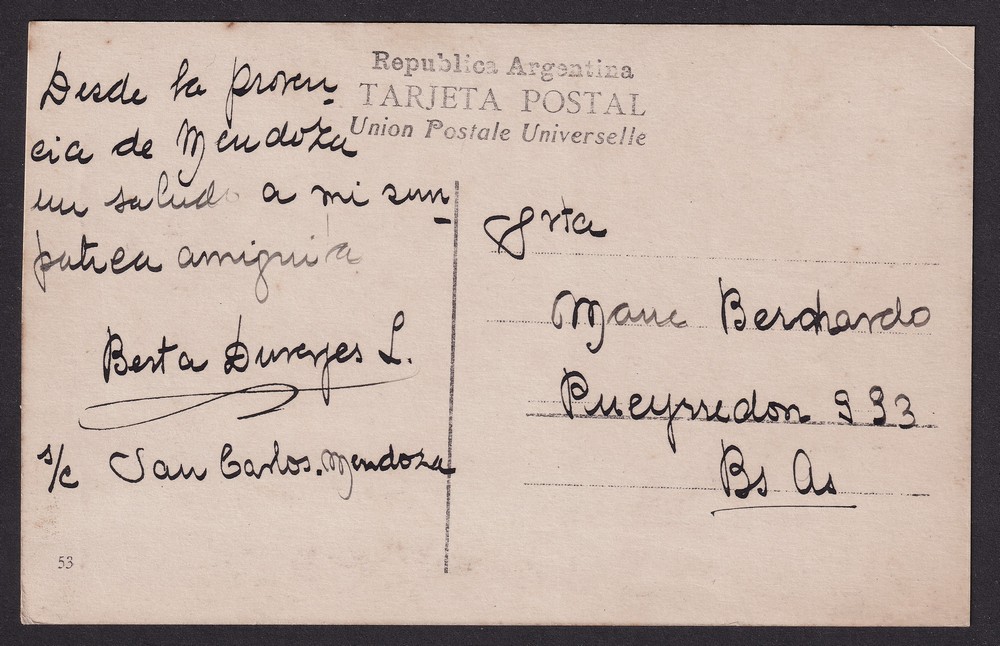 Republica Argentina
TARJETA POSTAL
Union Postale Universelle
Desde la provin-
cia de Mendoza
un saludo a mi sim-
patica amiguita
Berta L.
s/c San Carlos. Mendoza
53
Srta
Bernardo
Pueyrredon 993
Bs As